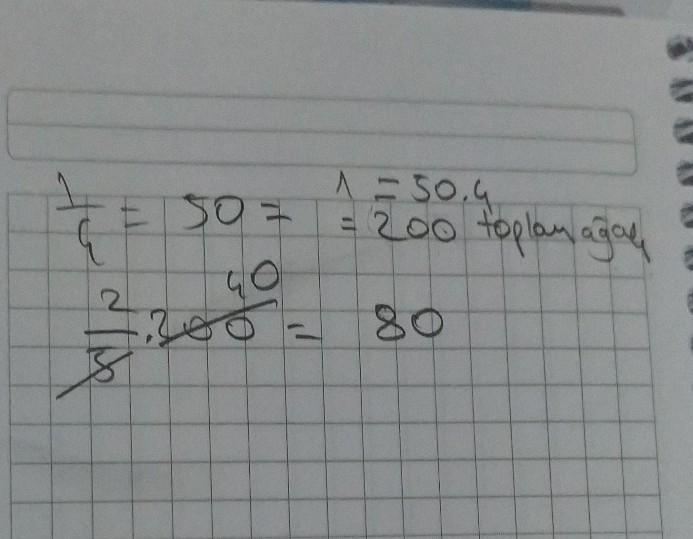 1/4 = 50 = 1 = 50.4
= 200 toplam ağaç
40
2/5 . 200 = 80